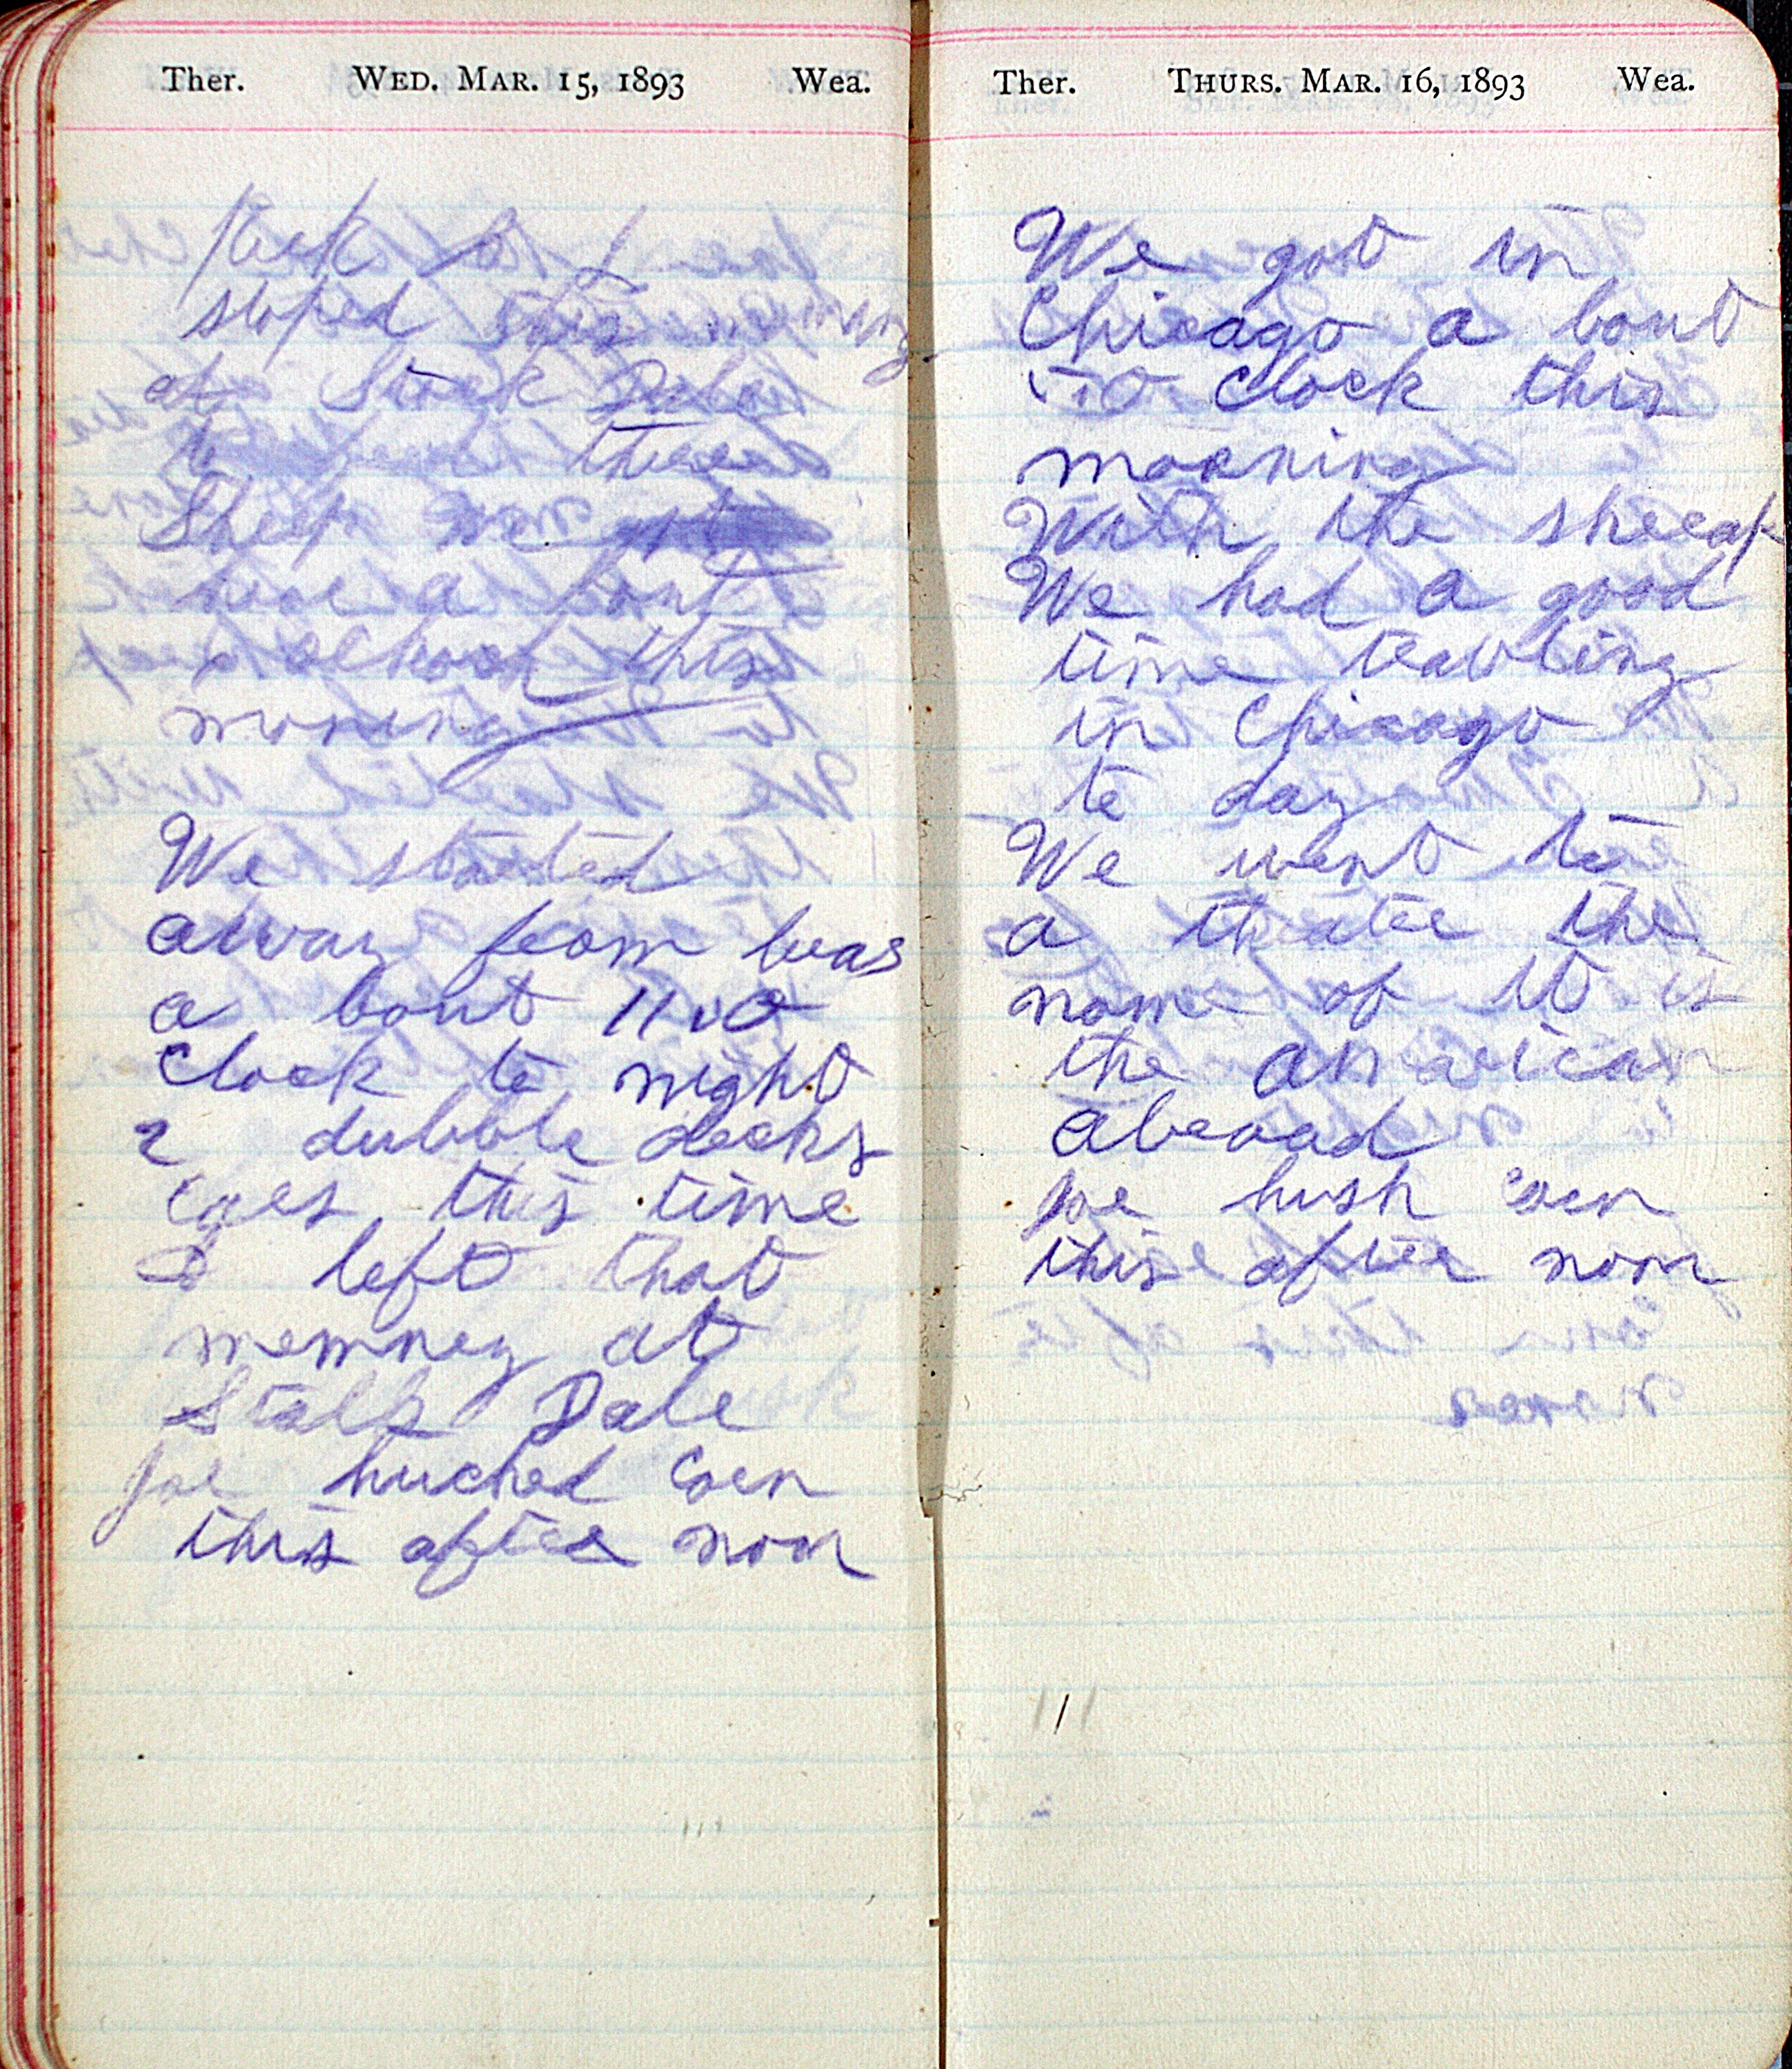 Ther. WED. MAR. 15, 1893 Wea.
stoped this morning
at Stock Dale
three
Sheep we
here a bout
o clock this
morning
We started
away from hear
a bout 11 v O
Clock to night
2 dubble decks
Caes this time
I left that
memney at
Stalk Dale
Joe huched Coen
this after noon
Ther. THURS. MAR. 16, 1893 Wea.
We got in
Chicago a bout
O Clock this
morning
With the sheeap
We had a good
time teavling
in Chicago
to day
We went to
a theater the
name of it is
the American
abeoad
Joe hush Coen
this after noon